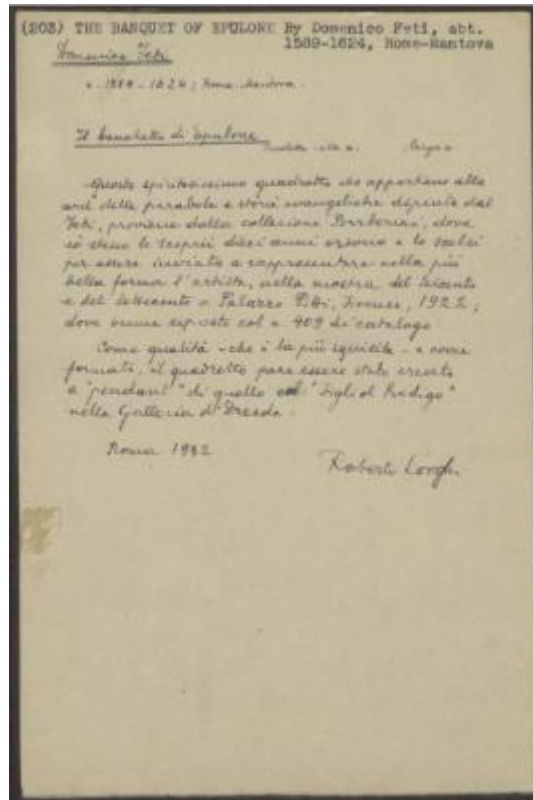 (203) THE BANQUET OF EPULONE By Domenico Feti, abt.
1589-1624, Rome-Mantova
Domenico Feti
1589-1624; Roma-Mantova.
Il banchetto di Epulone
Questo spiritosissimo quadretto che appartiene alla
delle parabole e storie evangeliche dipinte dal
Feti, proviene dalla collezione Barberini, dove
io stesso lo scoprii dieci anni orsono e lo scelsi
per essere inviato a rappresentare nella più
bella forma l'artista, nella mostra del Seicento
e del Settecento a Palazzo Pitti, 1922;
dove venne esposto col n. 409 di catalogo.
Come qualità - che è la più squisita - e come
formato, il quadretto pare essere stato creato
a "pendant" di quello col "Figliol Prodigo"
nella Galleria di Dresda.
Roma 1932
Roberto Longhi